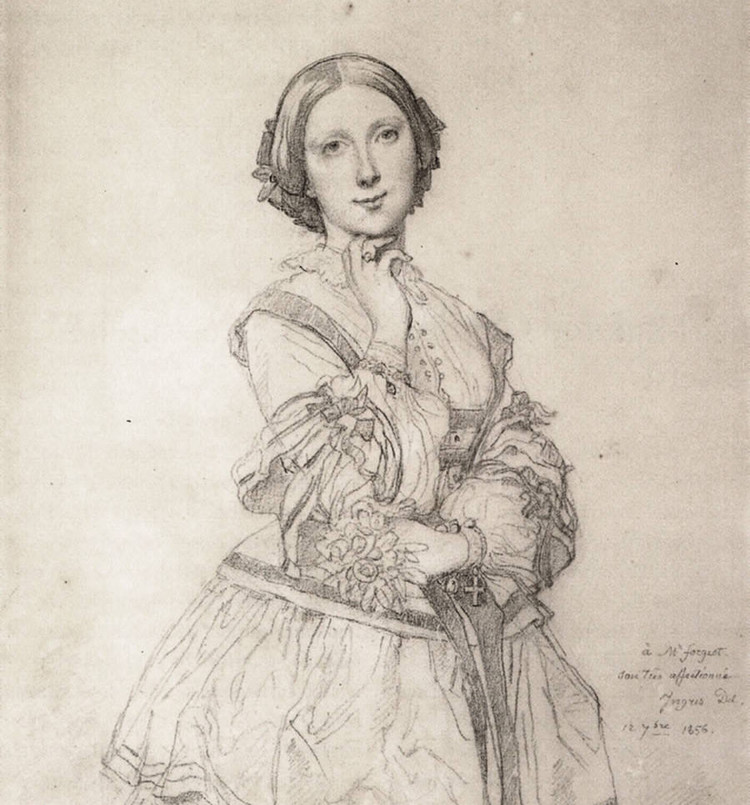 à Mr forgeot.
son très affectionné
Ingres Del.
12 7bre 1856.